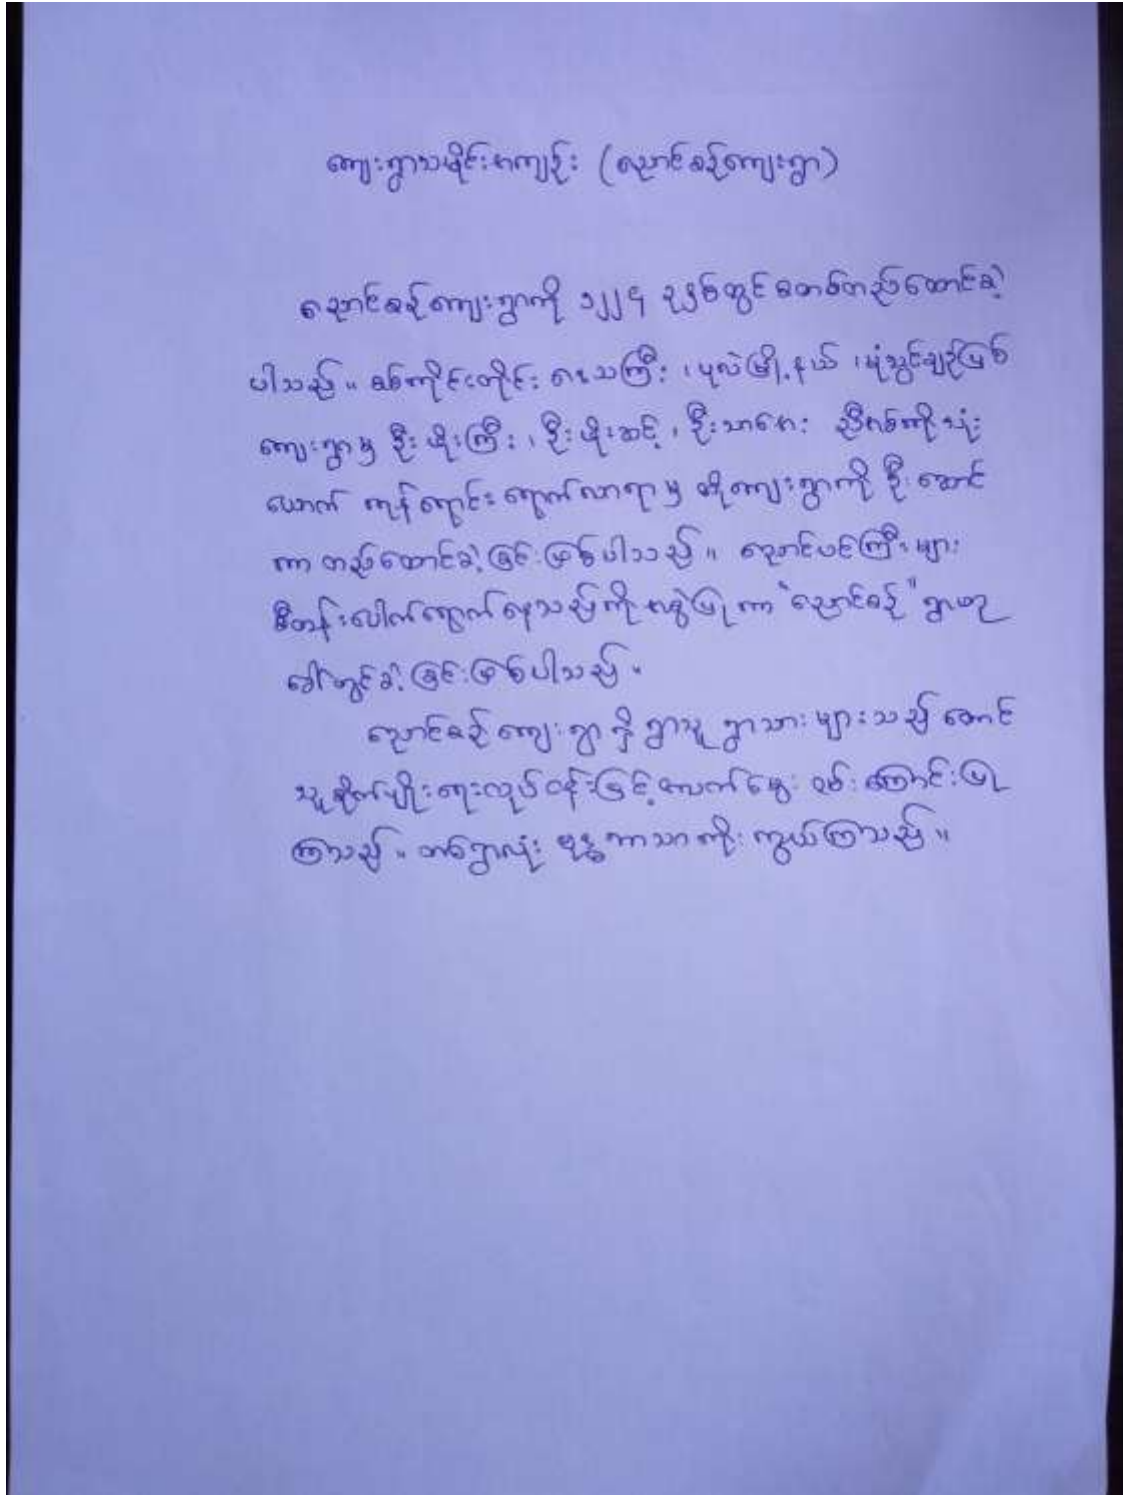 ကျေးရွာသမိုင်းအကျဉ်း (ညောင်စဉ်ကျေးရွာ)
ညောင်စဉ်ကျေးရွာကို ၁၂၂၄ ခုနှစ်တွင် စတင်တည်ထောင်ခဲ့
ပါသည်။ စစ်ကိုင်းတိုင်း ဒေသကြီး ၊ ပုလဲမြို့နယ် ၊ မုံသွင်ချဉ်မြစ်
ကျေးရွာမှ ဦးဖိုးကြီး ၊ ဦးဖိုးဆင့် ၊ ဦးသာဇေး ညီအစ်ကိုသုံး
ယောက် ကုန်ရောင်းရောက်လာရာမှ ထိုကျေးရွာကို ဦးဆောင်
ကာ တည်ထောင်ခဲ့ခြင်းဖြစ်ပါသည်။ ညောင်ပင်ကြီးများ
စီတန်းပေါက်ရောက်နေသည်ကို အစွဲပြုကာ "ညောင်စဉ်" ရွာဟု
ခေါ်တွင်ခဲ့ခြင်းဖြစ်ပါသည်။
ညောင်စဉ်ကျေးရွာရှိ ရွာသူ ရွာသားများသည် တောင်
သူစိုက်ပျိုးရေးလုပ်ငန်းဖြင့် အသက်မွေးဝမ်းကြောင်းပြု
ကြသည်။ တစ်ရွာလုံး ဗုဒ္ဓဘာသာကိုးကွယ်ကြသည်။